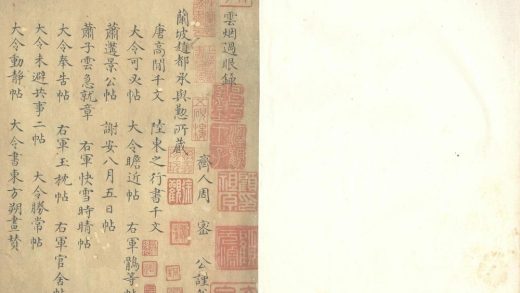 雲烟過眼録
齊人周 密 公謹
蘭坡趙都承與懃所藏
唐高閑千文 陸東之行書千文
大令可必帖 大令瞻近帖 右軍鵝等帖
蕭邁景公帖 謝安八月五日帖
蕭子雲急就章 右軍快雪時晴帖
大令奉告帖 右軍玉枕帖 右軍官舍帖
大令未避此事二帖 大令勝常帖
大令動静帖 大令書東方朔畫賛